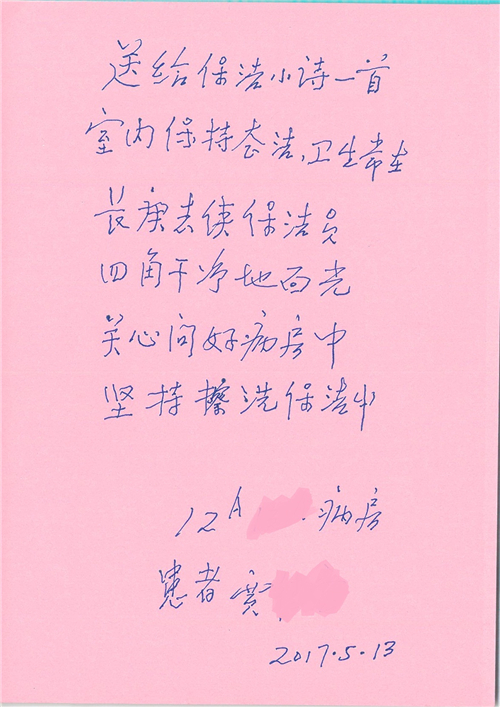 送给保洁小诗一首
室内保持整洁,卫生常在
长庚老侠保洁员
四角干净地面光
关心问好病房中
坚持擦洗保洁中
12A 病房
患者
2017.5.13